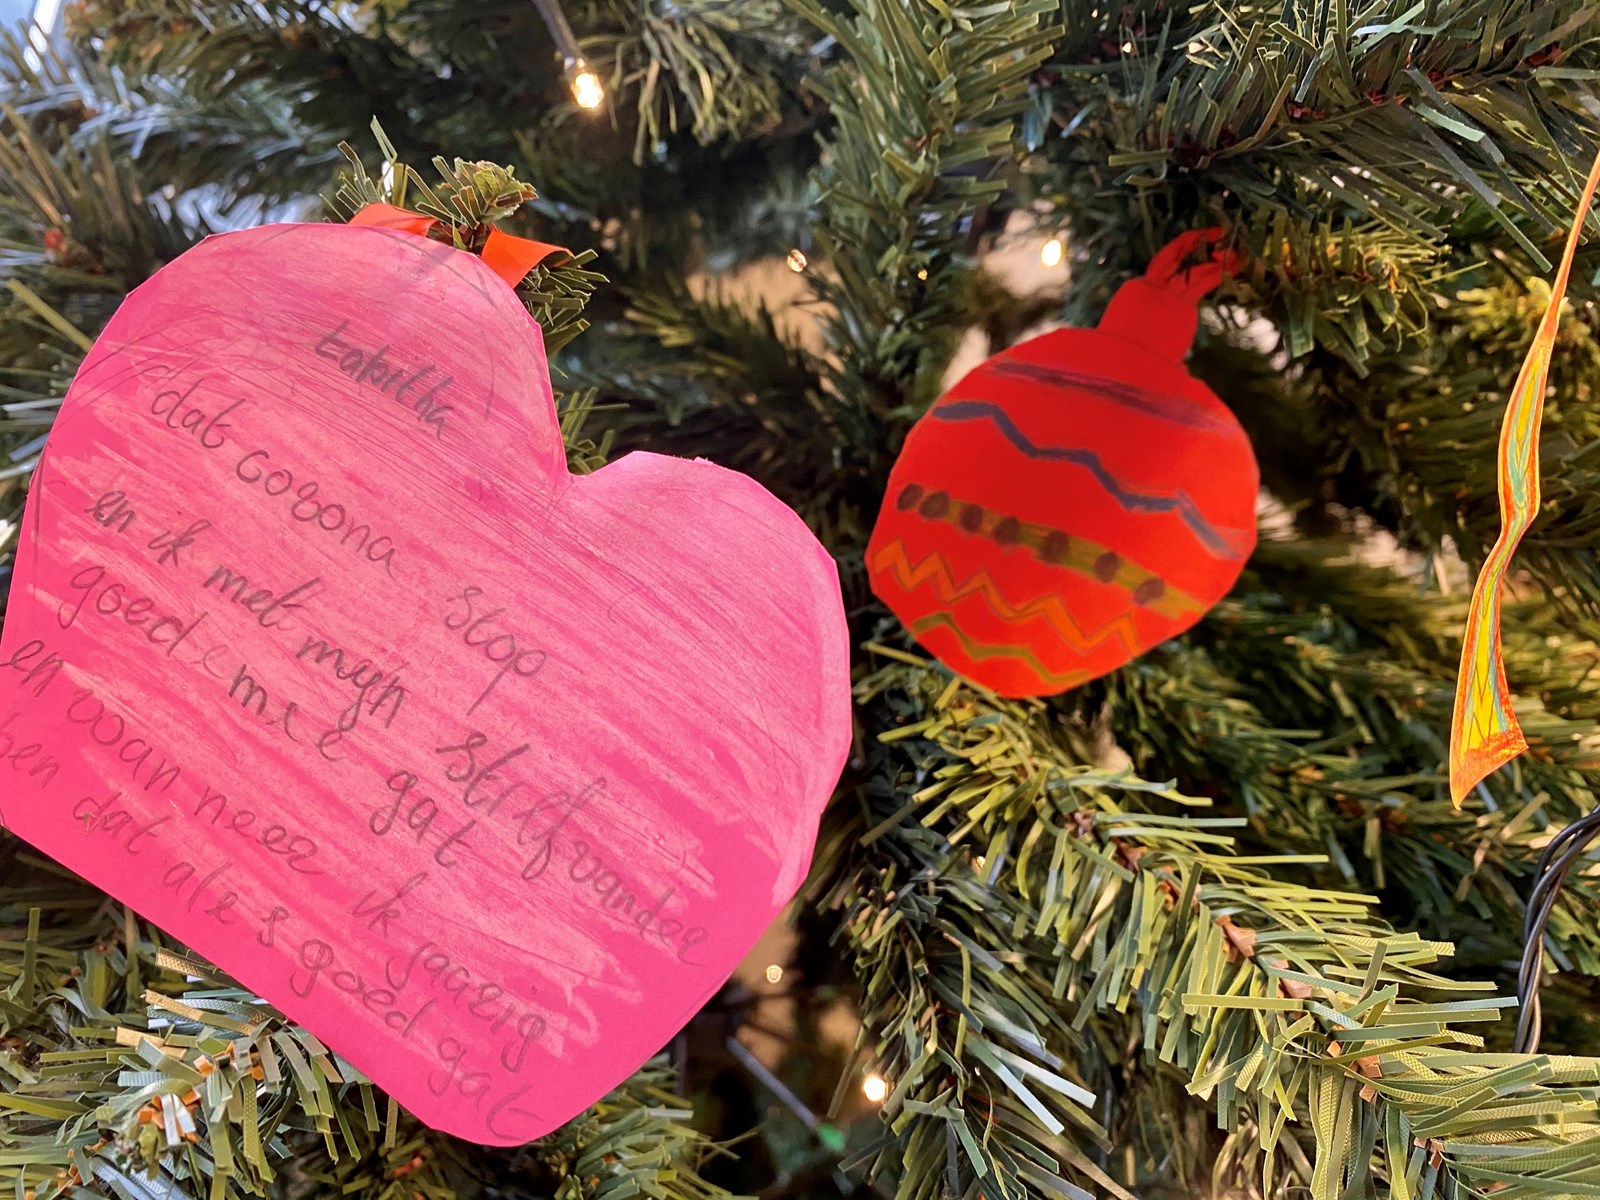 tabitha
dat corona stop
en ik met mijn strlfvander
goed mee gat
en wan neer ik jaarig
ben dat ales goed gat